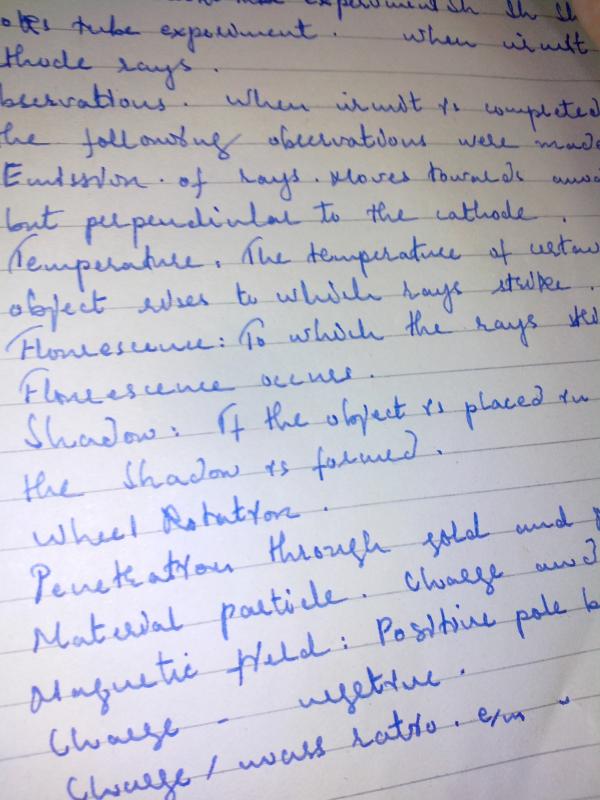 experiment
tube experiment. When
thode rays.
bservations. When is completed
the following observations were made
Emission of rays. Moves towards
but perpendiular to the cathode.
Temperature. The temperature of
object rises to which rays strike.
Flourescence: To which the rays
Flourescence occurs.
Shadow: If the object is placed in
the shadow is formed.
Wheel Rotation.
Penetration through gold and
Material particle. Charge and
Magnetic Field: Positive pole
Charge - negetive.
Charge / mass ratio. e/m